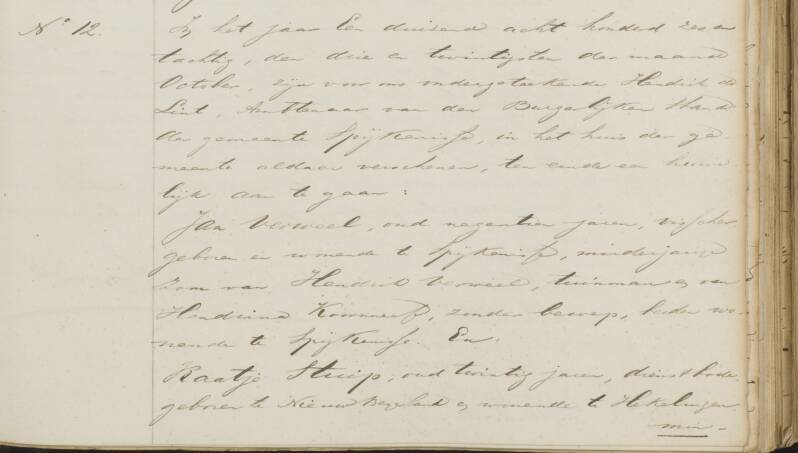 No 12.
In het jaar Een duizend acht honderd zes en
tachtig, den drie en twintigsten der maand
October, zijn voor ons ondergeteekende Hendrik de
Lint, Ambtenaar van den Burgerlijken Stand
der gemeente Spijkenisse, in het huis der ge-
meente aldaar verschenen, ten einde een huwe-
lijk aan te gaan:
Jan Verweel, oud negentien jaren, visscher
geboren en wonende te Spijkenisse, minderjarige
Zoon van Hendrik Verweel, tuinman en van
Hendrina Kouwneef, zonder beroep, beiden wo-
nende te Spijkenisse. En.
Kaatje Stuip, oud twintig jaren, dienstbode,
geboren te Nieuw Beijerland en wonende te Hekelingen
min-